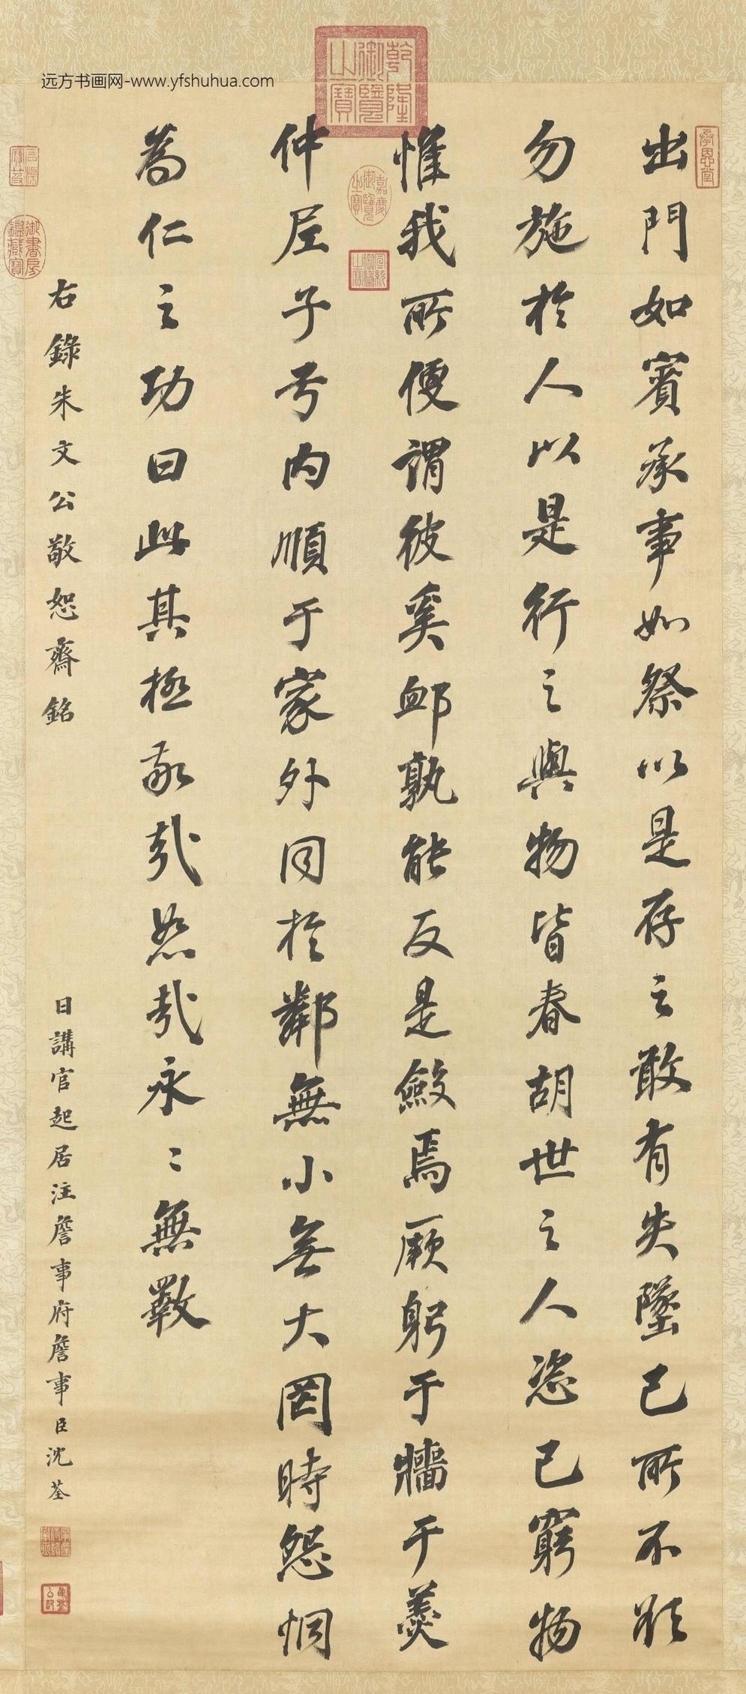 远方书画网-www.yfshuhua.com
乾隆
御覽
之寶
出門如賓承事如祭以是存之敢有失墜己所不欲
勿施於人以是行之與物皆春胡世之人恣己窮物
嘉慶
御覽
之寶
惟我所便謂彼奚卹孰能反是斂焉厥躬于牆于羹
仲尼子弓內順于家外同於鄰無小無大罔時怨恫
為仁之功曰此其極敬哉恕哉永〻無斁
右錄朱文公敬恕齋銘
日講官起居注詹事府詹事臣沈荃
御書房
鑑藏寶